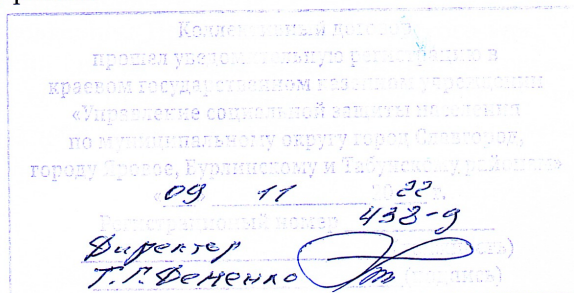 Коллективный договор
прошел уведомительную регистрацию в
краевом государственном казенном учреждении
«Управление социальной защиты населения
по муниципальному округу город Славгород,
городу Яровое, Бурлинскому и Табунскому районам»
09 11 22 г.
номер 438-д
Директор
Т.Г. Деменко (подпись)